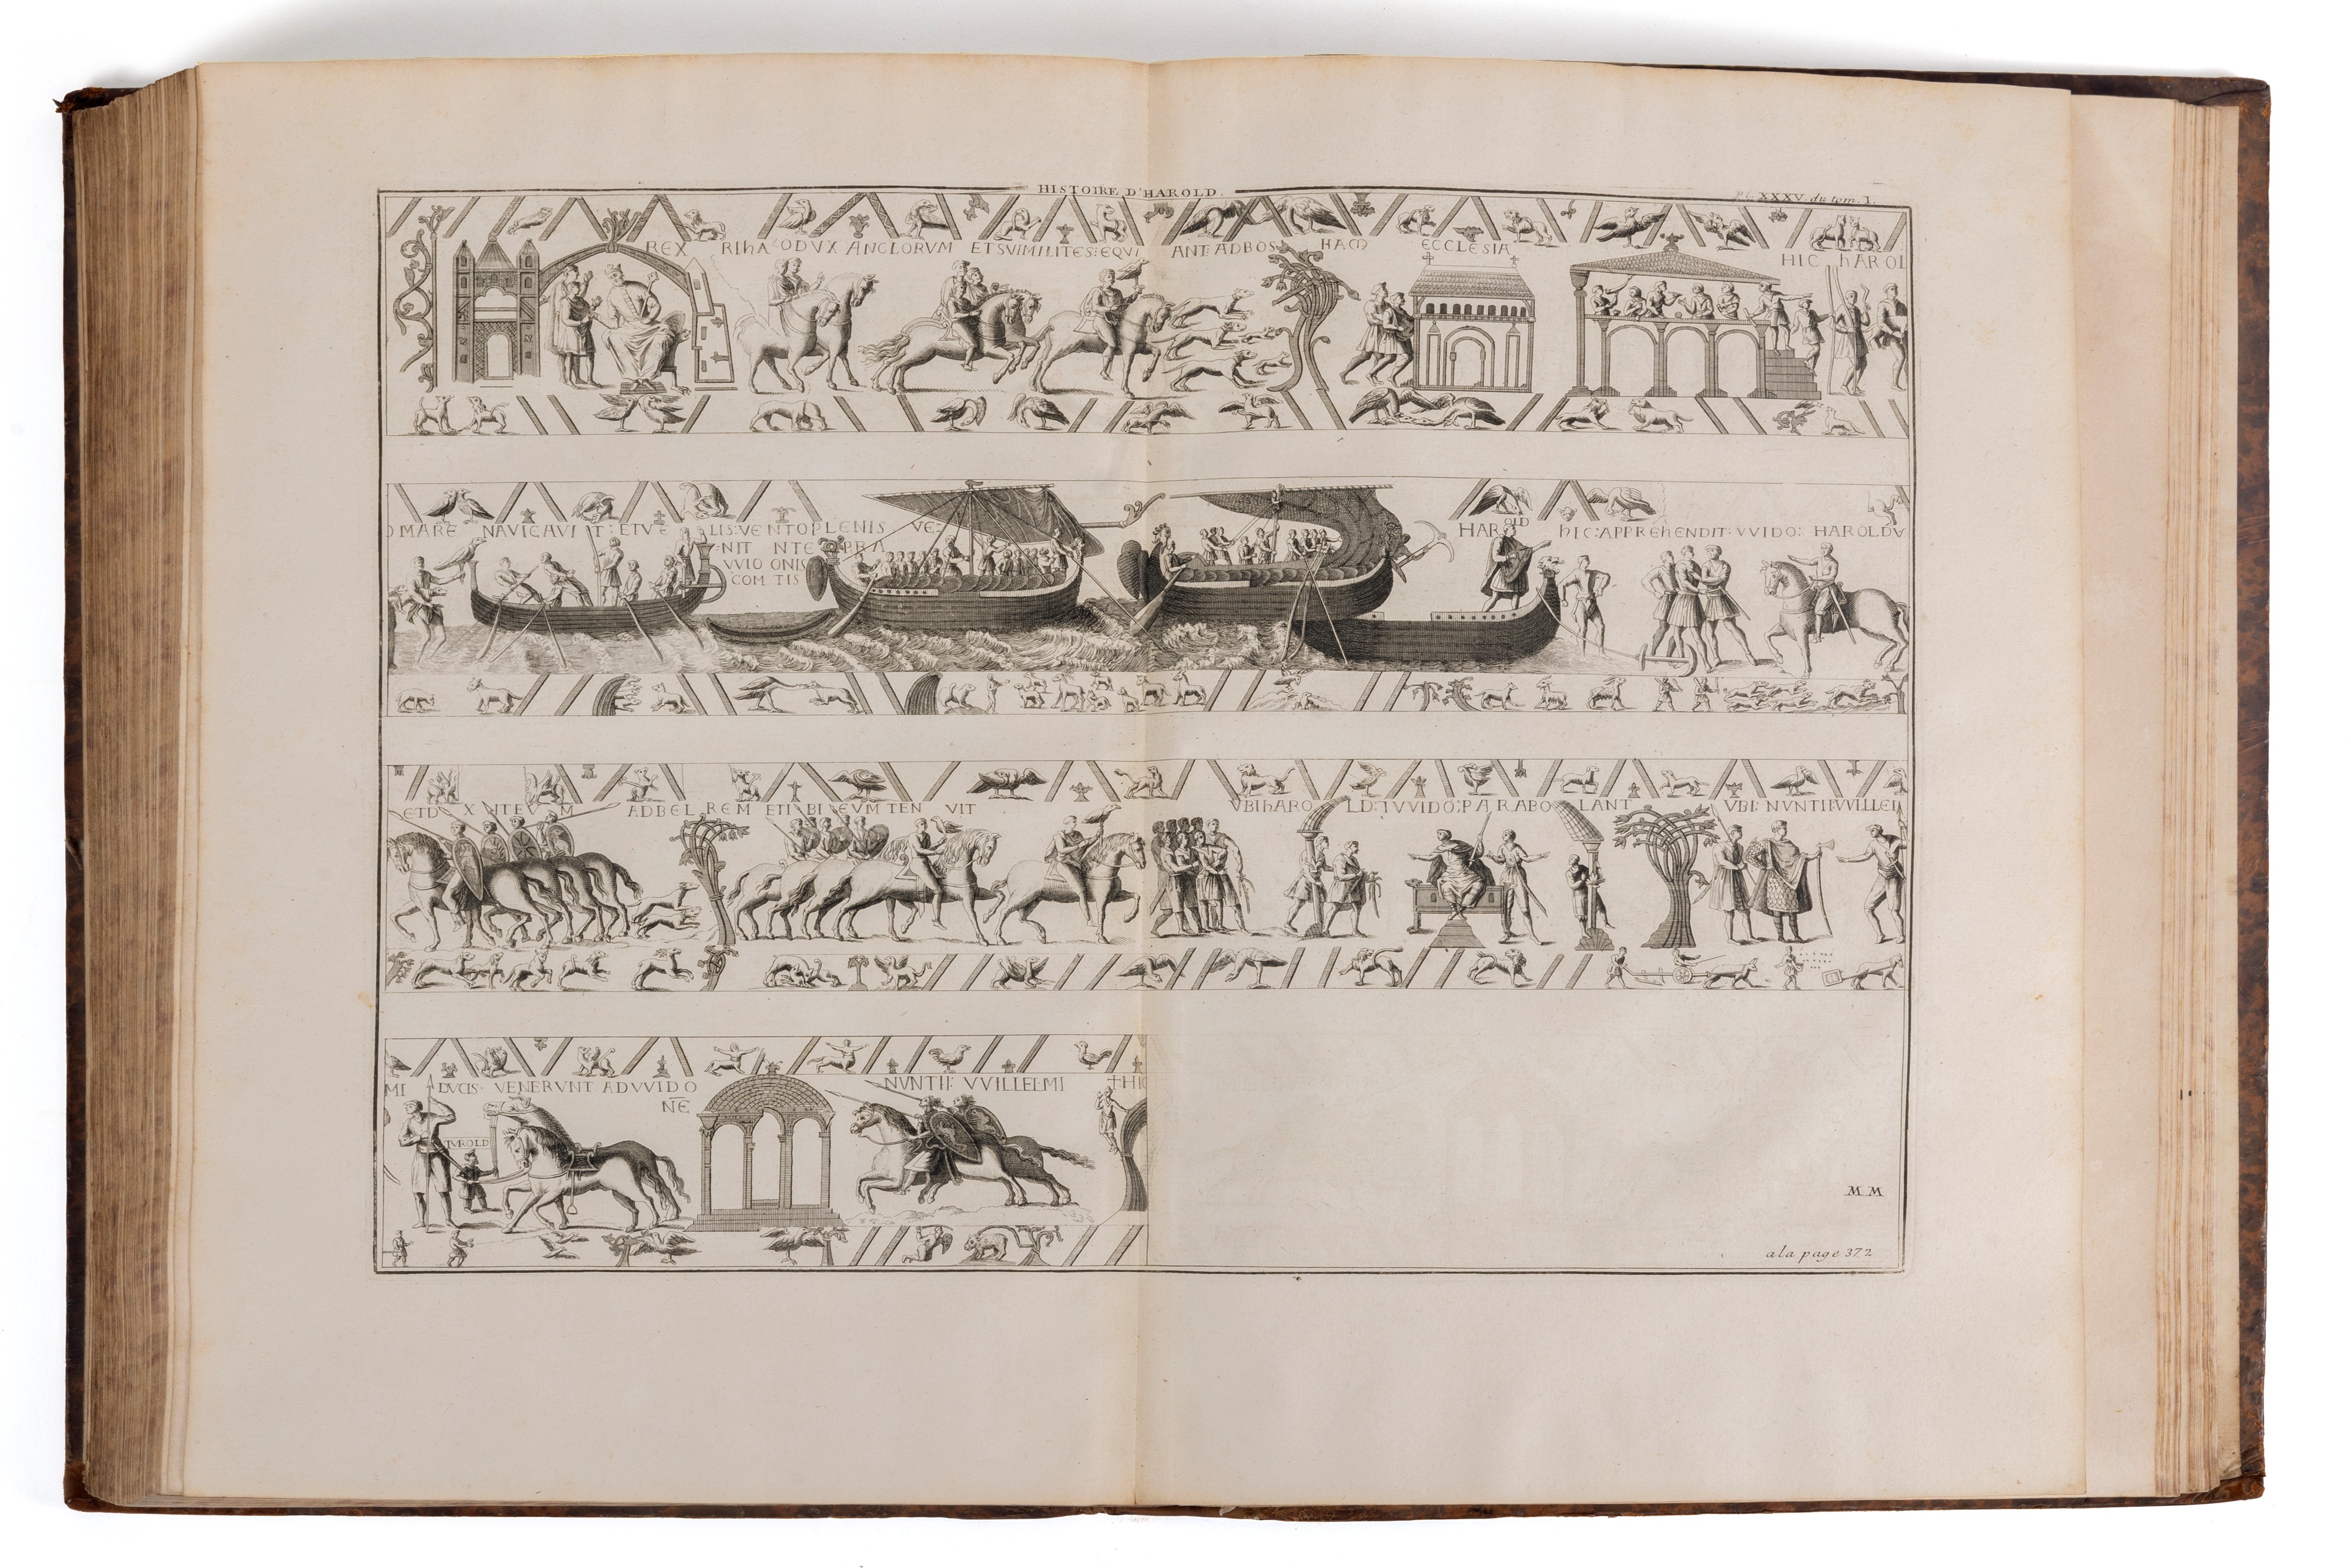 HISTOIRE D'HAROLD.
Pl. XXXV. du tom. I.
REX RIhALODVX ANGLORVM ETSVIMILITES: EQVI ANT: ADBOS hAM ECCLESIA HIC hAROL
D MARE NAVIGAVIT: ETVE LIS: VENTOPLENIS VE-
-NIT NTE RRA
VVIO ONIS
COM TIS
HAROLD hIC: APPREhENDIT: VVIDO: HAROLDV
ETD X NTE V M AD BEL REM ETI BI EVM TEN VIT VBIhARO LD: IVVIDO: PARABO LANT VBI: NVNTII: VVILLEL
MI DVCIS· VENERVNT ADVVIDO
NĒ
TVROLD
NVNTII: VVILLELMI +HIC
M M
a la page 372